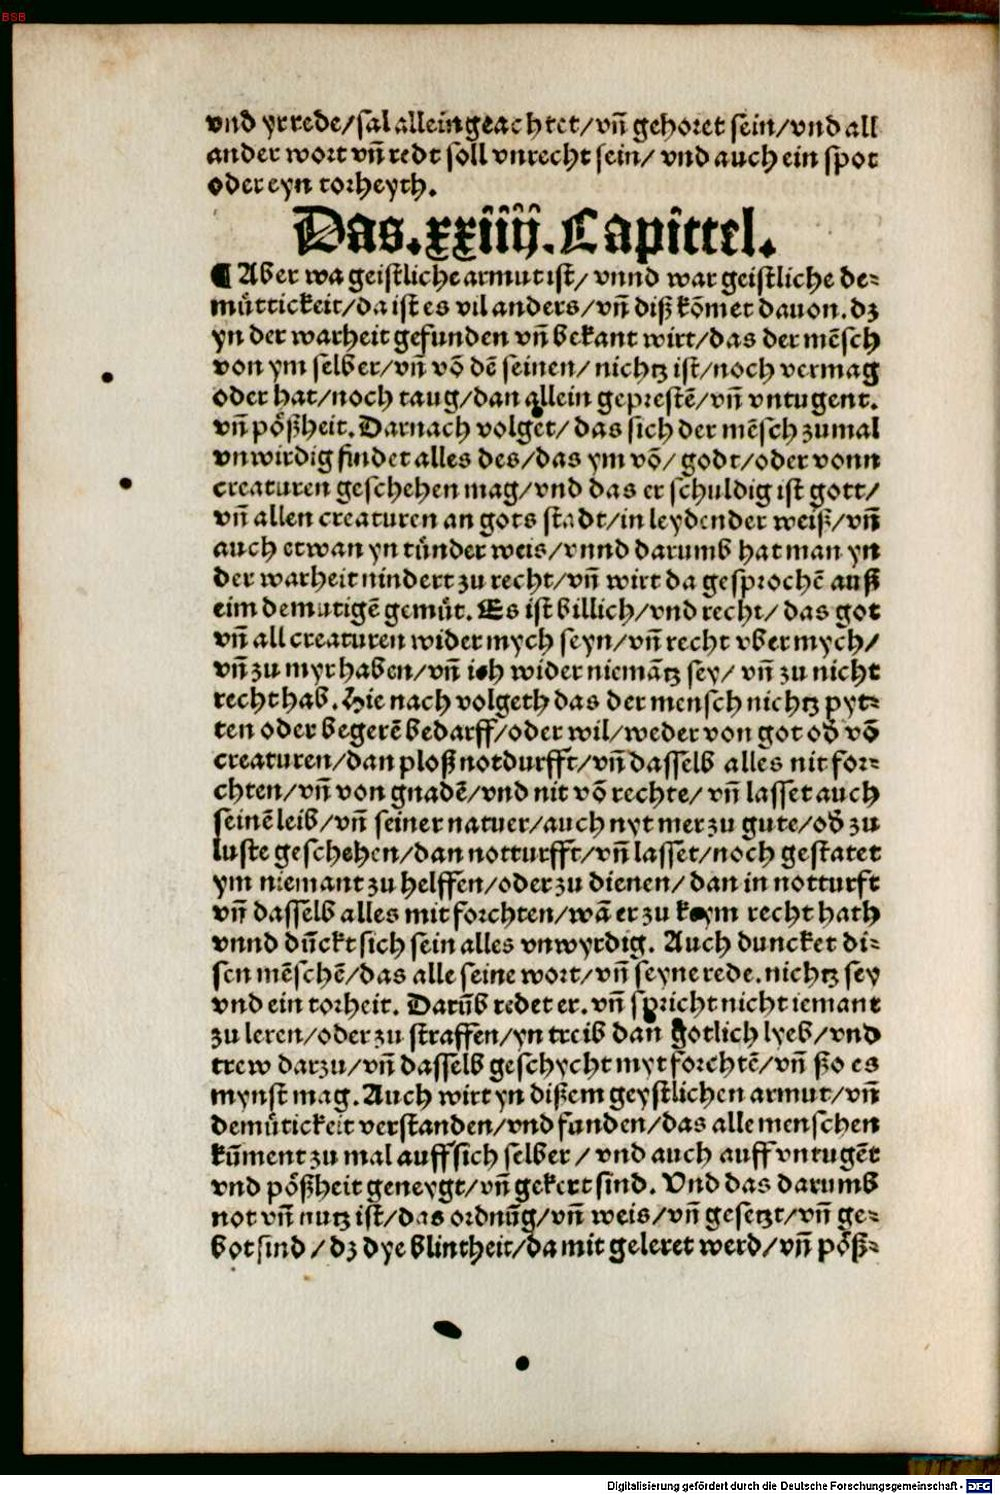 BSB
vnd yr rede/sal allein geachtet/vn̄ gehoꝛet sein/vnd all
ander woꝛt vn̄ redt soll vnrecht sein/ vnd auch ein spot
oder eyn toꝛheyth.
Das.xxiiij.Capittel.
¶ Aber wa geistliche armut ist/ vnnd war geistliche de⸗
müttickeit/da ist es vil anders/vn̄ diß kōmet dauon.dz
yn der warheit gefunden vn̄ bekant wirt/das der mēsch
von ym selber/vn̄ vō dē seinen/ nichtz ist/noch vermag
oder hat/noch taug/dan allein gepꝛestē/vn̄ vntugent.
vn̄ pößheit.Darnach volget/ das sich der mēsch zumal
vnwirdig findet alles des/das ym vō/ godt/oder vonn
creaturen geschehen mag/vnd das er schuldig ist gott/
vn̄ allen creaturen an gots stadt/in leydender weiß/vn̄
auch etwan yn tünder weis/vnnd darumb hat man yn
der warheit nindert zu recht/vn̄ wirt da gespꝛochē auß
eim demutigē gemüt. Es ist billich/vnd recht/ das got
vn̄ all creaturen wider mych seyn/vn̄ recht vber mych/
vn̄ zu myr haben/vn̄ ich wider niemātz sey/ vn̄ zu nicht
recht hab. Hie nach volgeth das der mensch nichtz pyt⸗
ten oder begerē bedarff/oder wil/weder von got od̕ vō
creaturen/dan ploß notdurfft/vn̄ dasselb alles nit foꝛ⸗
chten/vn̄ von gnadē/vnd nit vō rechte/ vn̄ lasset auch
seinē leib/vn̄ seiner natuer/auch nyt mer zu gute/od̕ zu
luste geschehen/dan notturfft/vn̄ lasset/noch gestatet
ym niemant zu helffen/oder zu dienen/ dan in notturft
vn̄ dasselb alles mit foꝛchten/wā er zu keym recht hath
vnnd dūckt sich sein alles vnwyrdig. Auch duncket di⸗
sen mēschē/das alle seine woꝛt/vn̄ seyne rede.nichtz sey
vnd ein toꝛheit. Darūb redet er.vn̄ spꝛicht nicht iemant
zu leren/oder zu straffen/yn treib dan gotlich lyeb/vnd
trew darzu/vn̄ dasselb geschycht myt foꝛchtē/vn̄ ßo es
mynst mag.Auch wirt yn dißem geystlichen armut/vn̄
demütickeit verstanden/vnd funden/das alle menschen
kūment zu mal auff sich selber / vnd auch auff vntugēt
vnd pößheit geneygt/vn̄ gekert sind. Vnd das darumb
not vn̄ nutz ist/das oꝛdnūg/vn̄ weis/vn̄ gesetzt/vn̄ ge⸗
bot sind / dz dye blintheit/da mit geleret werd/vn̄ pöß⸗
Digitalisierung gefördert durch die Deutsche Forschungsgemeinschaft - DFG